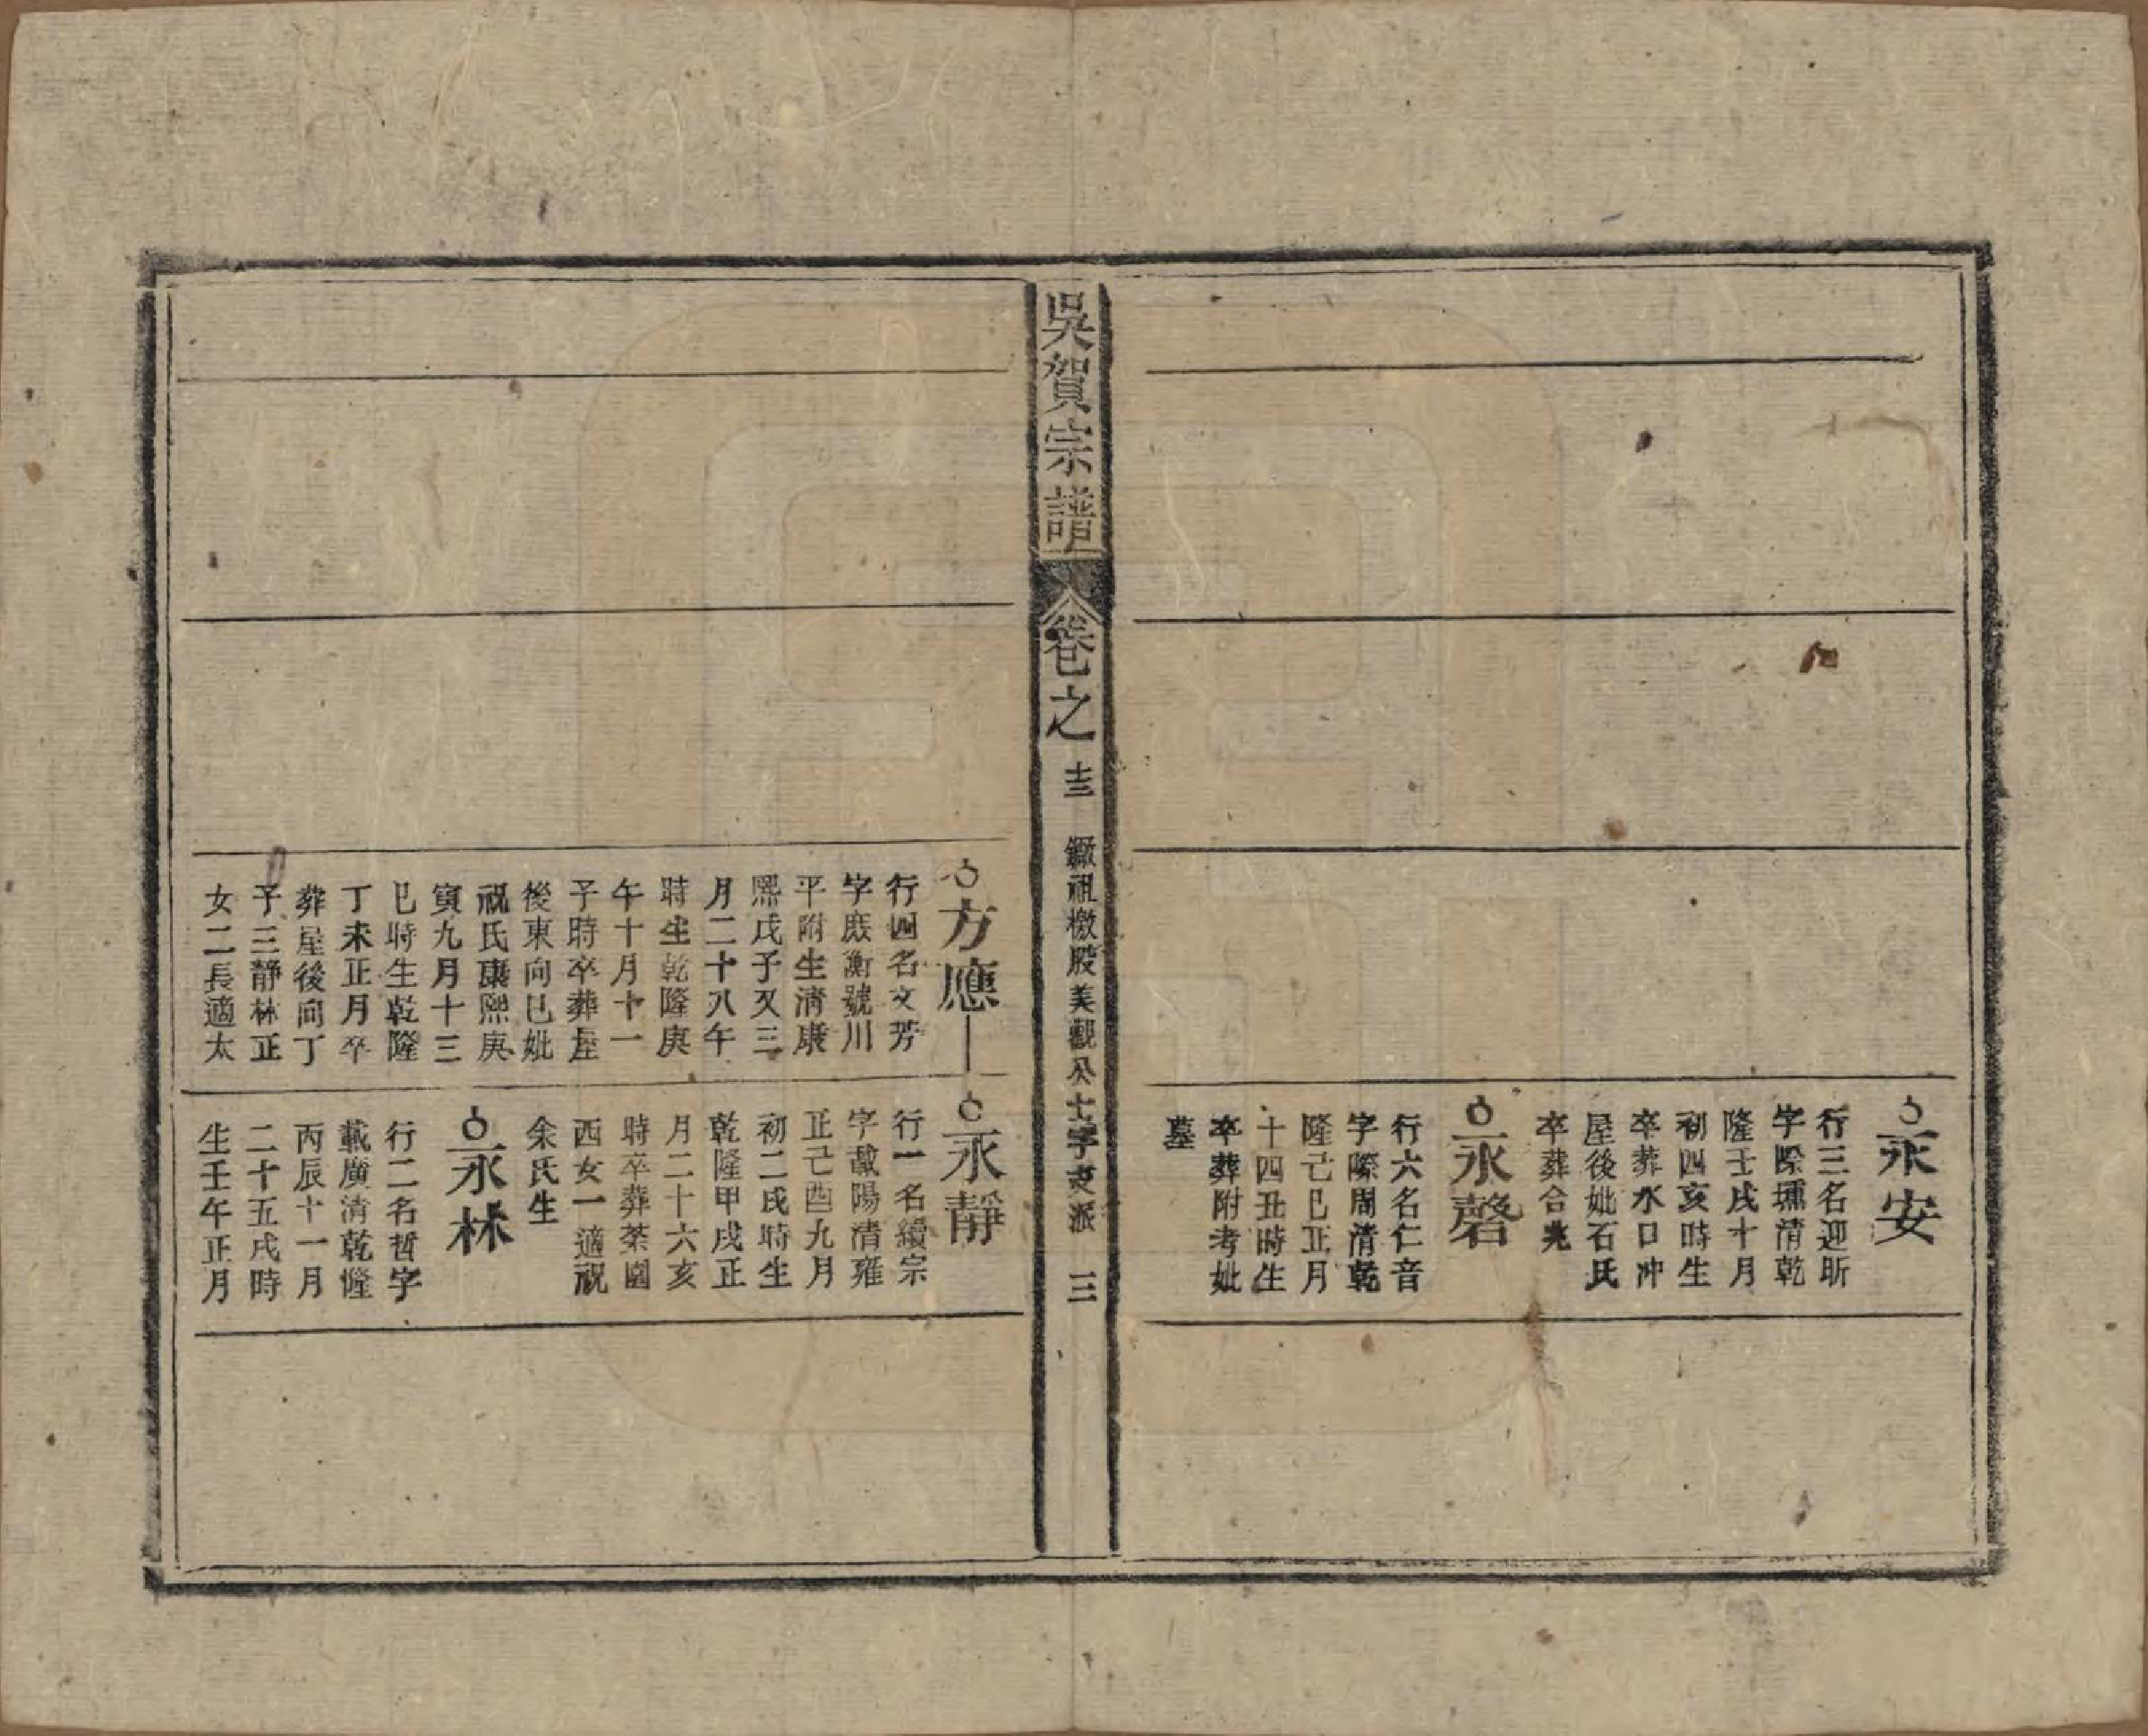 永安
行三名迎昕
字際壎清乾
隆壬戌十月
初四亥時生
卒葬水口冲
屋後妣石氏
卒葬合兆
永磬
行六名仁音
字際周清乾
隆己巳正月
十四丑時生
卒葬附考妣
墓
吳賀宗譜
卷之
十三
祖檄股美觀公士字支派
三
方應
行四名文芳
字殿衡號川
平附生清康
熙戊子又三
月二十八午
時生乾隆庚
午十月十一
子時卒葬屋
後東向巳妣
祝氏康熙庚
寅九月十三
巳時生乾隆
丁未正月卒
葬屋後向丁
子三靜林正
女二長適太
永靜
行一名續宗
字載陽清雍
正己酉九月
初二辰時生
乾隆甲戌正
月二十六亥
時卒葬茶園
西女一適祝
余氏生
永林
行二名哲字
載廣清乾隆
丙辰十一月
二十五戌時
生壬午正月